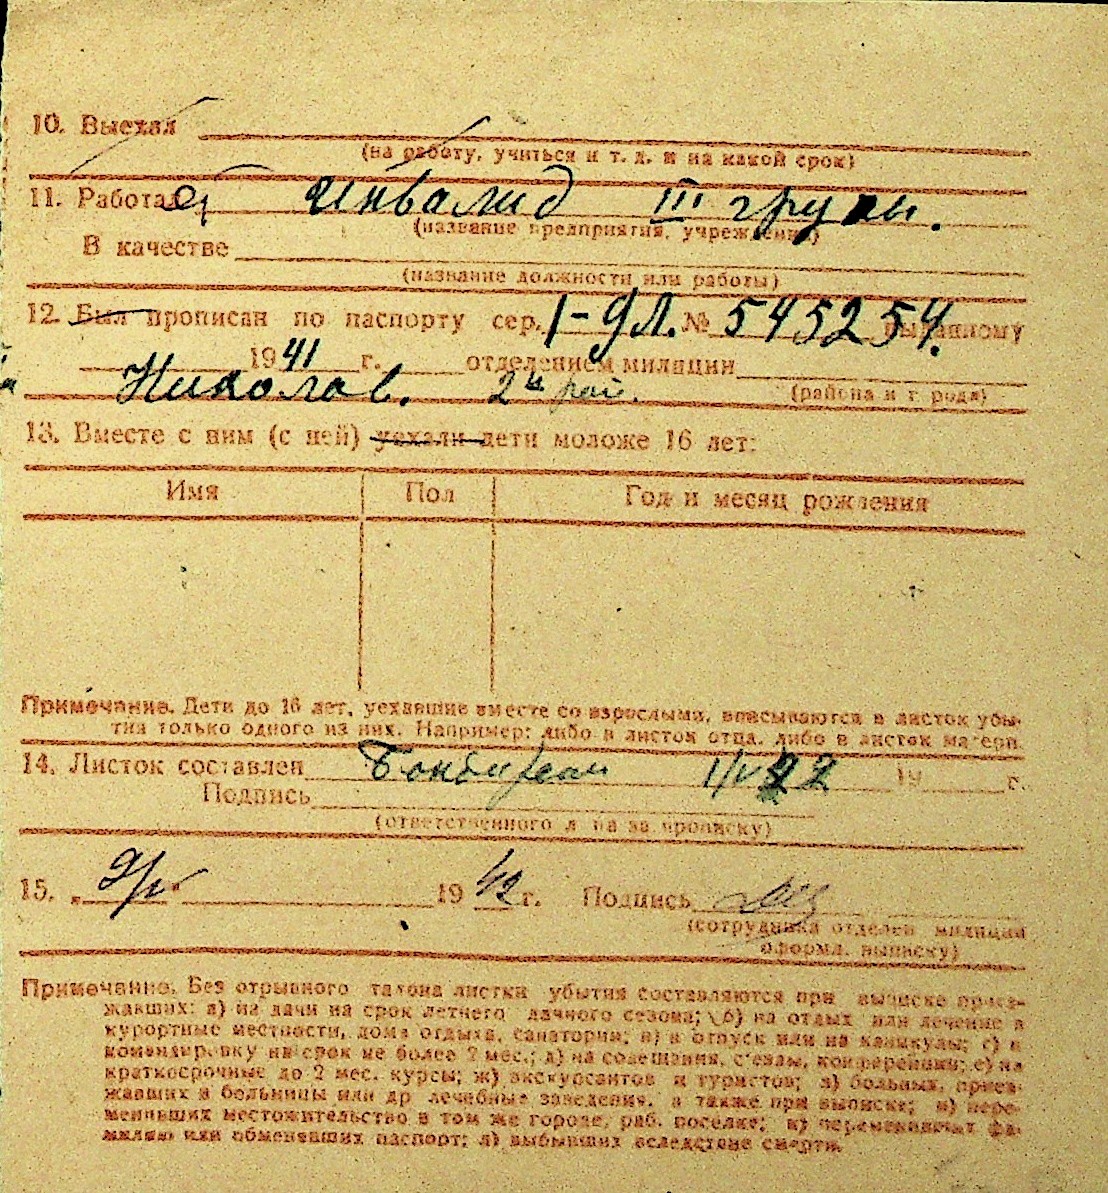 10. Выехал
(на работу, учиться и т. д. и на какой срок)
11. Работает инвалид III групы.
(название предприятия, учреждения)
В качестве
(название должности или работы)
12. Был прописан по паспорту сер. 1-УЛ. № 545254. выданному
1941 г. отделением милиции
Николав. 2й рай.
(района и города)
13. Вместе с ним (с ней) уехали дети моложе 16 лет:
Имя Пол Год и месяц рождения
Примечание. Дети до 16 лет, уехавшие вместе со взрослыми, вписываются в листок убы-
тия только одного из них. Например: либо в листок отца, либо в листок матери.
14. Листок составлен 19 г.
Подпись
(ответственного лица за прописку)
15. „ 19 42 г. Подпись
(сотрудника отделен. милиции
оформл. выписку)
Примечание. Без отрывного талона листки убытия составляются при выписке приез-
жавших: а) на дачи на срок летнего дачного сезона; б) на отдых или лечение в
курортные местности, дома отдыха, санатории; в) в отпуск или на каникулы; г) в
командировку на срок не более 2 мес.; д) на совещания, с'езды, конференции; е) на
краткосрочные до 2 мес. курсы; ж) экскурсантов и туристов; з) больных, приез-
жавших в больницы или др лечебные заведения, а также при выписке; и) пере-
менивших местожительство в том же городе, раб. поселке; к) переменивших фа-
милию или обменявших паспорт; л) выбывших вследствие смерти.